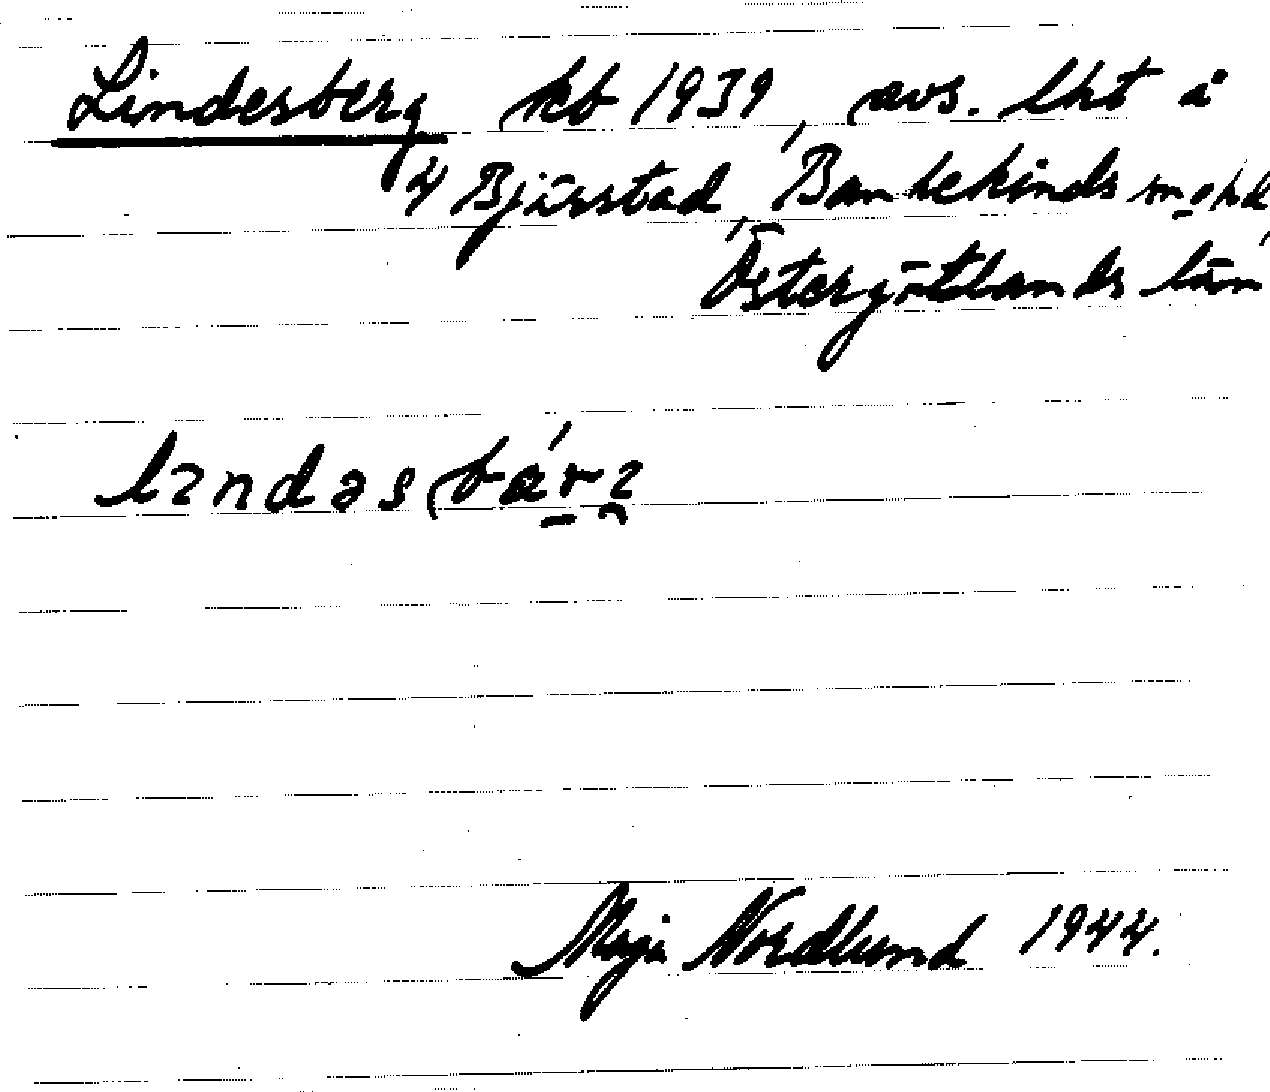 Lindesberg kb 1939, avs. lht å
4 Bjärstad, Bankekinds sn o hd,
Östergötlands län
Maja Nordlund 1944.